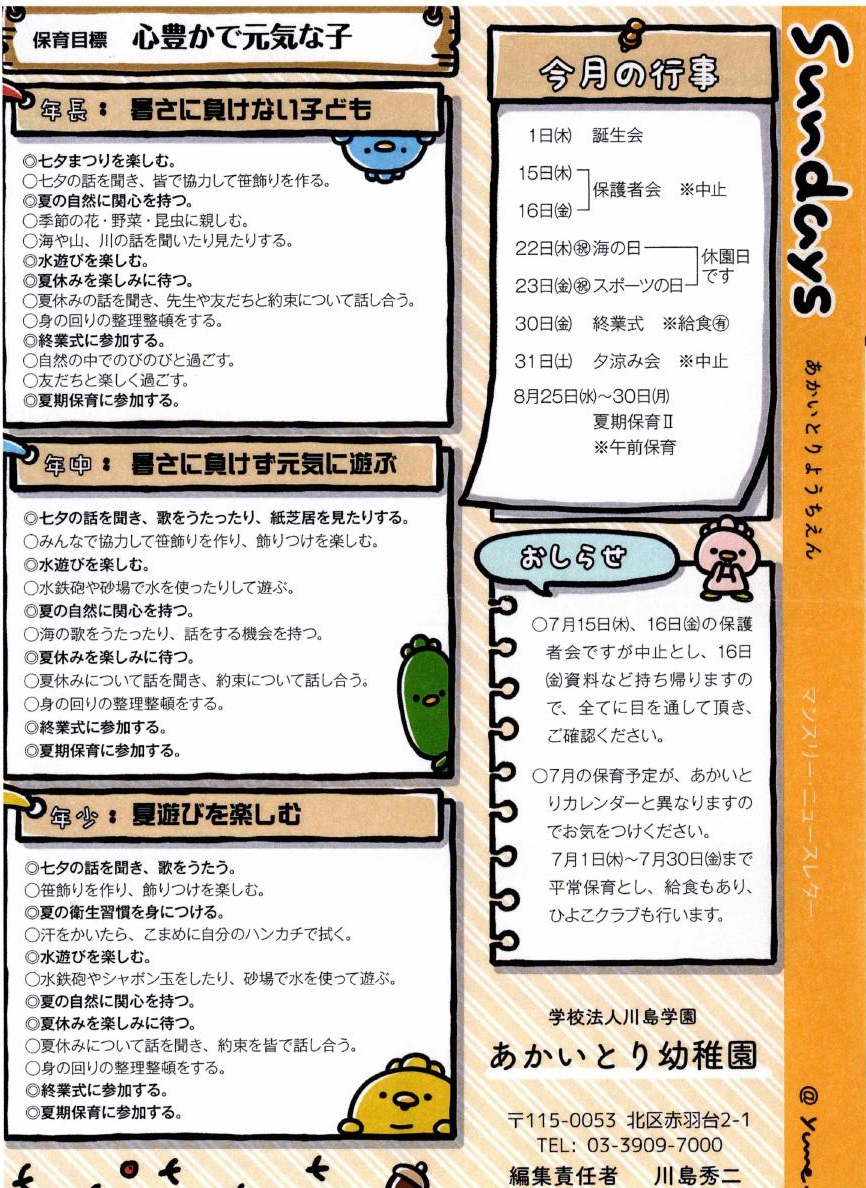 保育目標 心豊かで元気な子
年長：暑さに負けない子ども
◎七夕まつりを楽しむ。
○七夕の話を聞き、皆で協力して笹飾りを作る。
◎夏の自然に関心を持つ。
○季節の花・野菜・昆虫に親しむ。
○海や山、川の話を聞いたり見たりする。
◎水遊びを楽しむ。
◎夏休みを楽しみに待つ。
○夏休みの話を聞き、先生や友だちと約束について話し合う。
○身の回りの整理整頓をする。
◎終業式に参加する。
○自然の中でのびのびと過ごす。
○友だちと楽しく過ごす。
◎夏期保育に参加する。
年中：暑さに負けず元気に遊ぶ
◎七夕の話を聞き、歌をうたったり、紙芝居を見たりする。
○みんなで協力して笹飾りを作り、飾りつけを楽しむ。
◎水遊びを楽しむ。
○水鉄砲や砂場で水を使ったりして遊ぶ。
◎夏の自然に関心を持つ。
○海の歌をうたったり、話をする機会を持つ。
◎夏休みを楽しみに待つ。
○夏休みについて話を聞き、約束について話し合う。
○身の回りの整理整頓をする。
◎終業式に参加する。
◎夏期保育に参加する。
年少：夏遊びを楽しむ
◎七夕の話を聞き、歌をうたう。
○笹飾りを作り、飾りつけを楽しむ。
◎夏の衛生習慣を身につける。
○汗をかいたら、こまめに自分のハンカチで拭く。
◎水遊びを楽しむ。
○水鉄砲やシャボン玉をしたり、砂場で水を使って遊ぶ。
◎夏の自然に関心を持つ。
◎夏休みを楽しみに待つ。
○夏休みについて話を聞き、約束を皆で話し合う。
○身の回りの整理整頓をする。
◎終業式に参加する。
◎夏期保育に参加する。
今月の行事
1日㈭ 誕生会
15日㈭
16日㈮ 保護者会 ※中止
22日㈭㊗海の日
23日㈮㊗スポーツの日 休園日です
30日㈮ 終業式 ※給食㊒
31日㈯ 夕涼み会 ※中止
8月25日㈬〜30日㈪
夏期保育Ⅱ
※午前保育
おしらせ
○7月15日㈭、16日㈮の保護
者会ですが中止とし、16日
㈮資料など持ち帰りますの
で、全てに目を通して頂き、
ご確認ください。
○7月の保育予定が、あかいと
りカレンダーと異なりますの
でお気をつけください。
7月1日㈭〜7月30日㈮まで
平常保育とし、給食もあり、
ひよこクラブも行います。
学校法人川島学園
あかいとり幼稚園
〒115-0053 北区赤羽台2-1
TEL: 03-3909-7000
編集責任者 川島秀二
Sundays
あかいとりようちえん
マンスリーニュースレター
@ yume